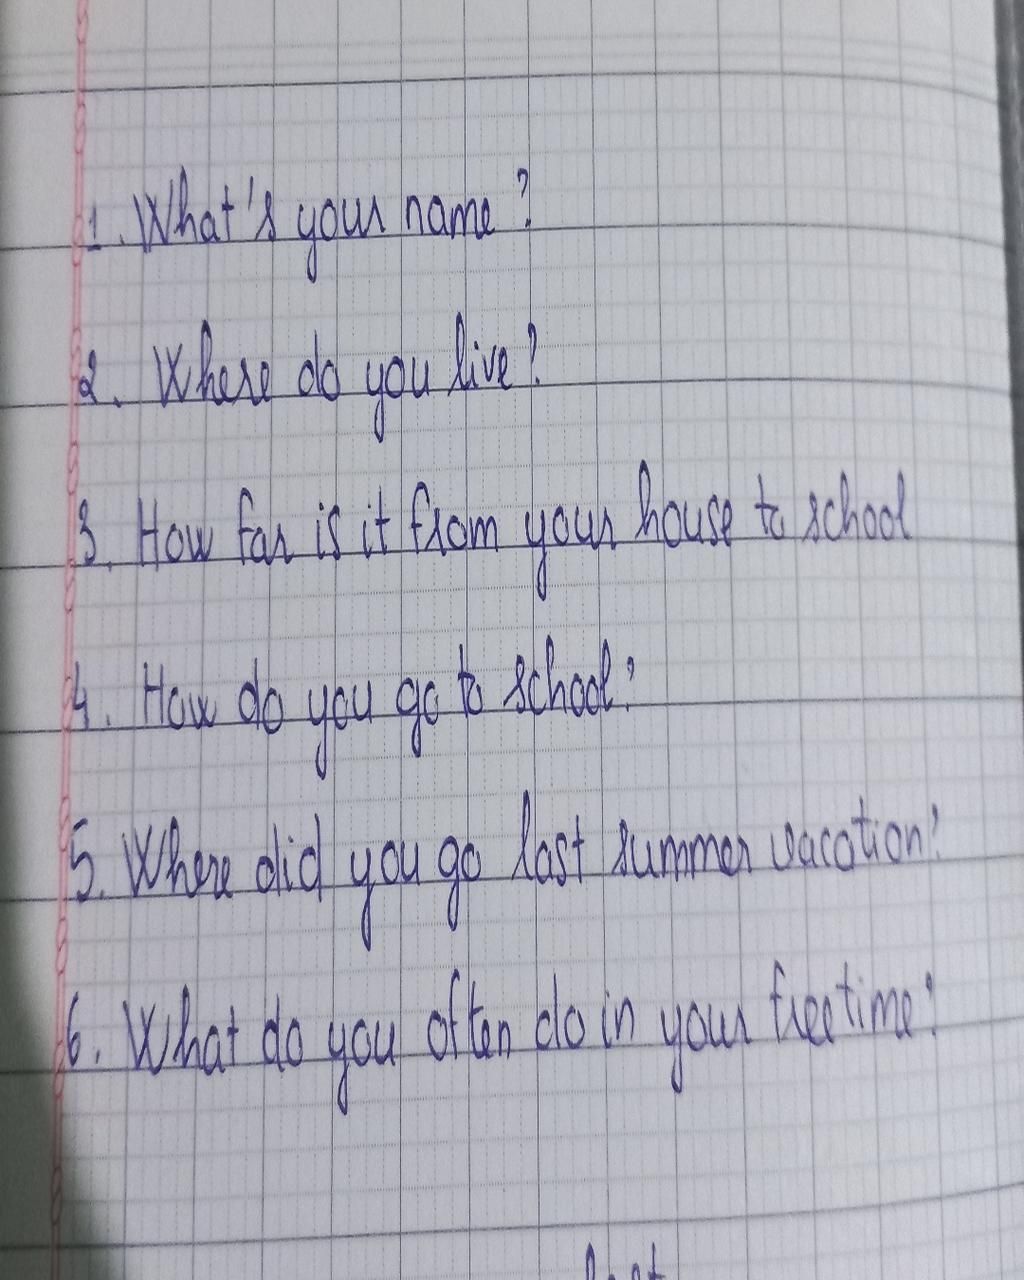 1. What's your name?
2. Where do you live?
3. How far is it from your house to school
4. How do you go to school?
5. Where did you go last summer vacation?
6. What do you often do in your free time?